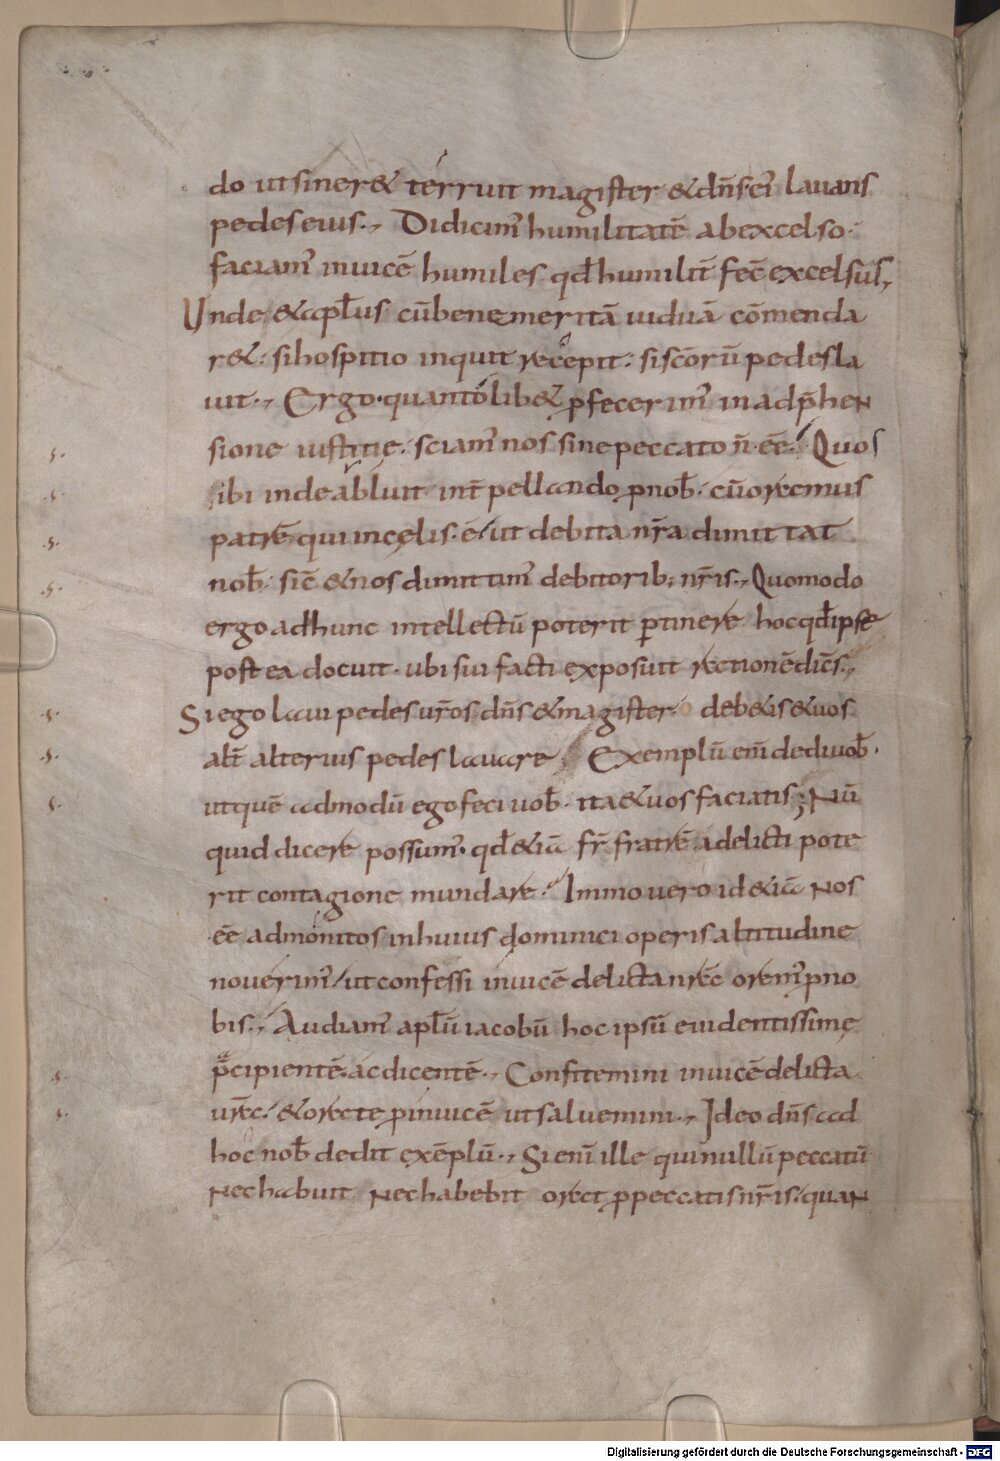 do ut siner& terruit magister &dn̄s ei᷒ lauans
pedes eius., Didicim᷒ humilitatē ab excelso.
faciam᷒ inuicē humiles qđ humilit̄ fec̄ excelsus,
Unde &apl̄us cū bene meritā uiduā cōmenda
r&. si hospitio inquit recepit. si sc̄orū pedes la
uit., Ergo quantolib& ꝓfecerim᷒ in adp̄hen
sione iustitię. sciam᷒ nos sine peccato n̄ eē. Quos
sibi inde abluit int̄pellando ꝓ nob̄. cū oremus
patrē qui in cęlis ē. ut debita nr̄a dimittat
nob̄. sic̄ &nos dimittim᷒ debitorib; nr̄is., Quomodo
ergo ad hunc intellectū poterit ꝑtinere hoc qđ ipse
postea docuit. ubi sui facti exposuit rectionē dic̄s.,
Si ego laui pedes ur̄os dn̄s &magister deb&is &uos
alt̄ alterius pedes lauare. Exemplū eni᷒ dedi uob̄.
ut quē admodū ego feci uob̄. ita &uos faciatis; Nū
quid dicere possum᷒. qđ &iā fr̄ fratrē a delicti pote
rit contagione mundare. Immo uero id &iā nos
eē admonitos in huius dominici operis altitudine
nouerim᷒. ut confessi inuicē delicta nr̄ę orem᷒ ꝓ no
bis., Audiam᷒ apl̄ū iacobū hoc ipsū euidentissimę
p̄cipientē. ac dicentē., Confitemini inuicē delicta
ur̄ę. &orate ꝓ inuicē ut saluemini., Ideo dn̄s ad
hoc nob̄ dedit exēplū., Si eni᷒ ille qui nullū peccatū
nec habuit nec habebit orat ꝓ peccatis nr̄is. quan
Digitalisierung gefördert durch die Deutsche Forschungsgemeinschaft - DFG